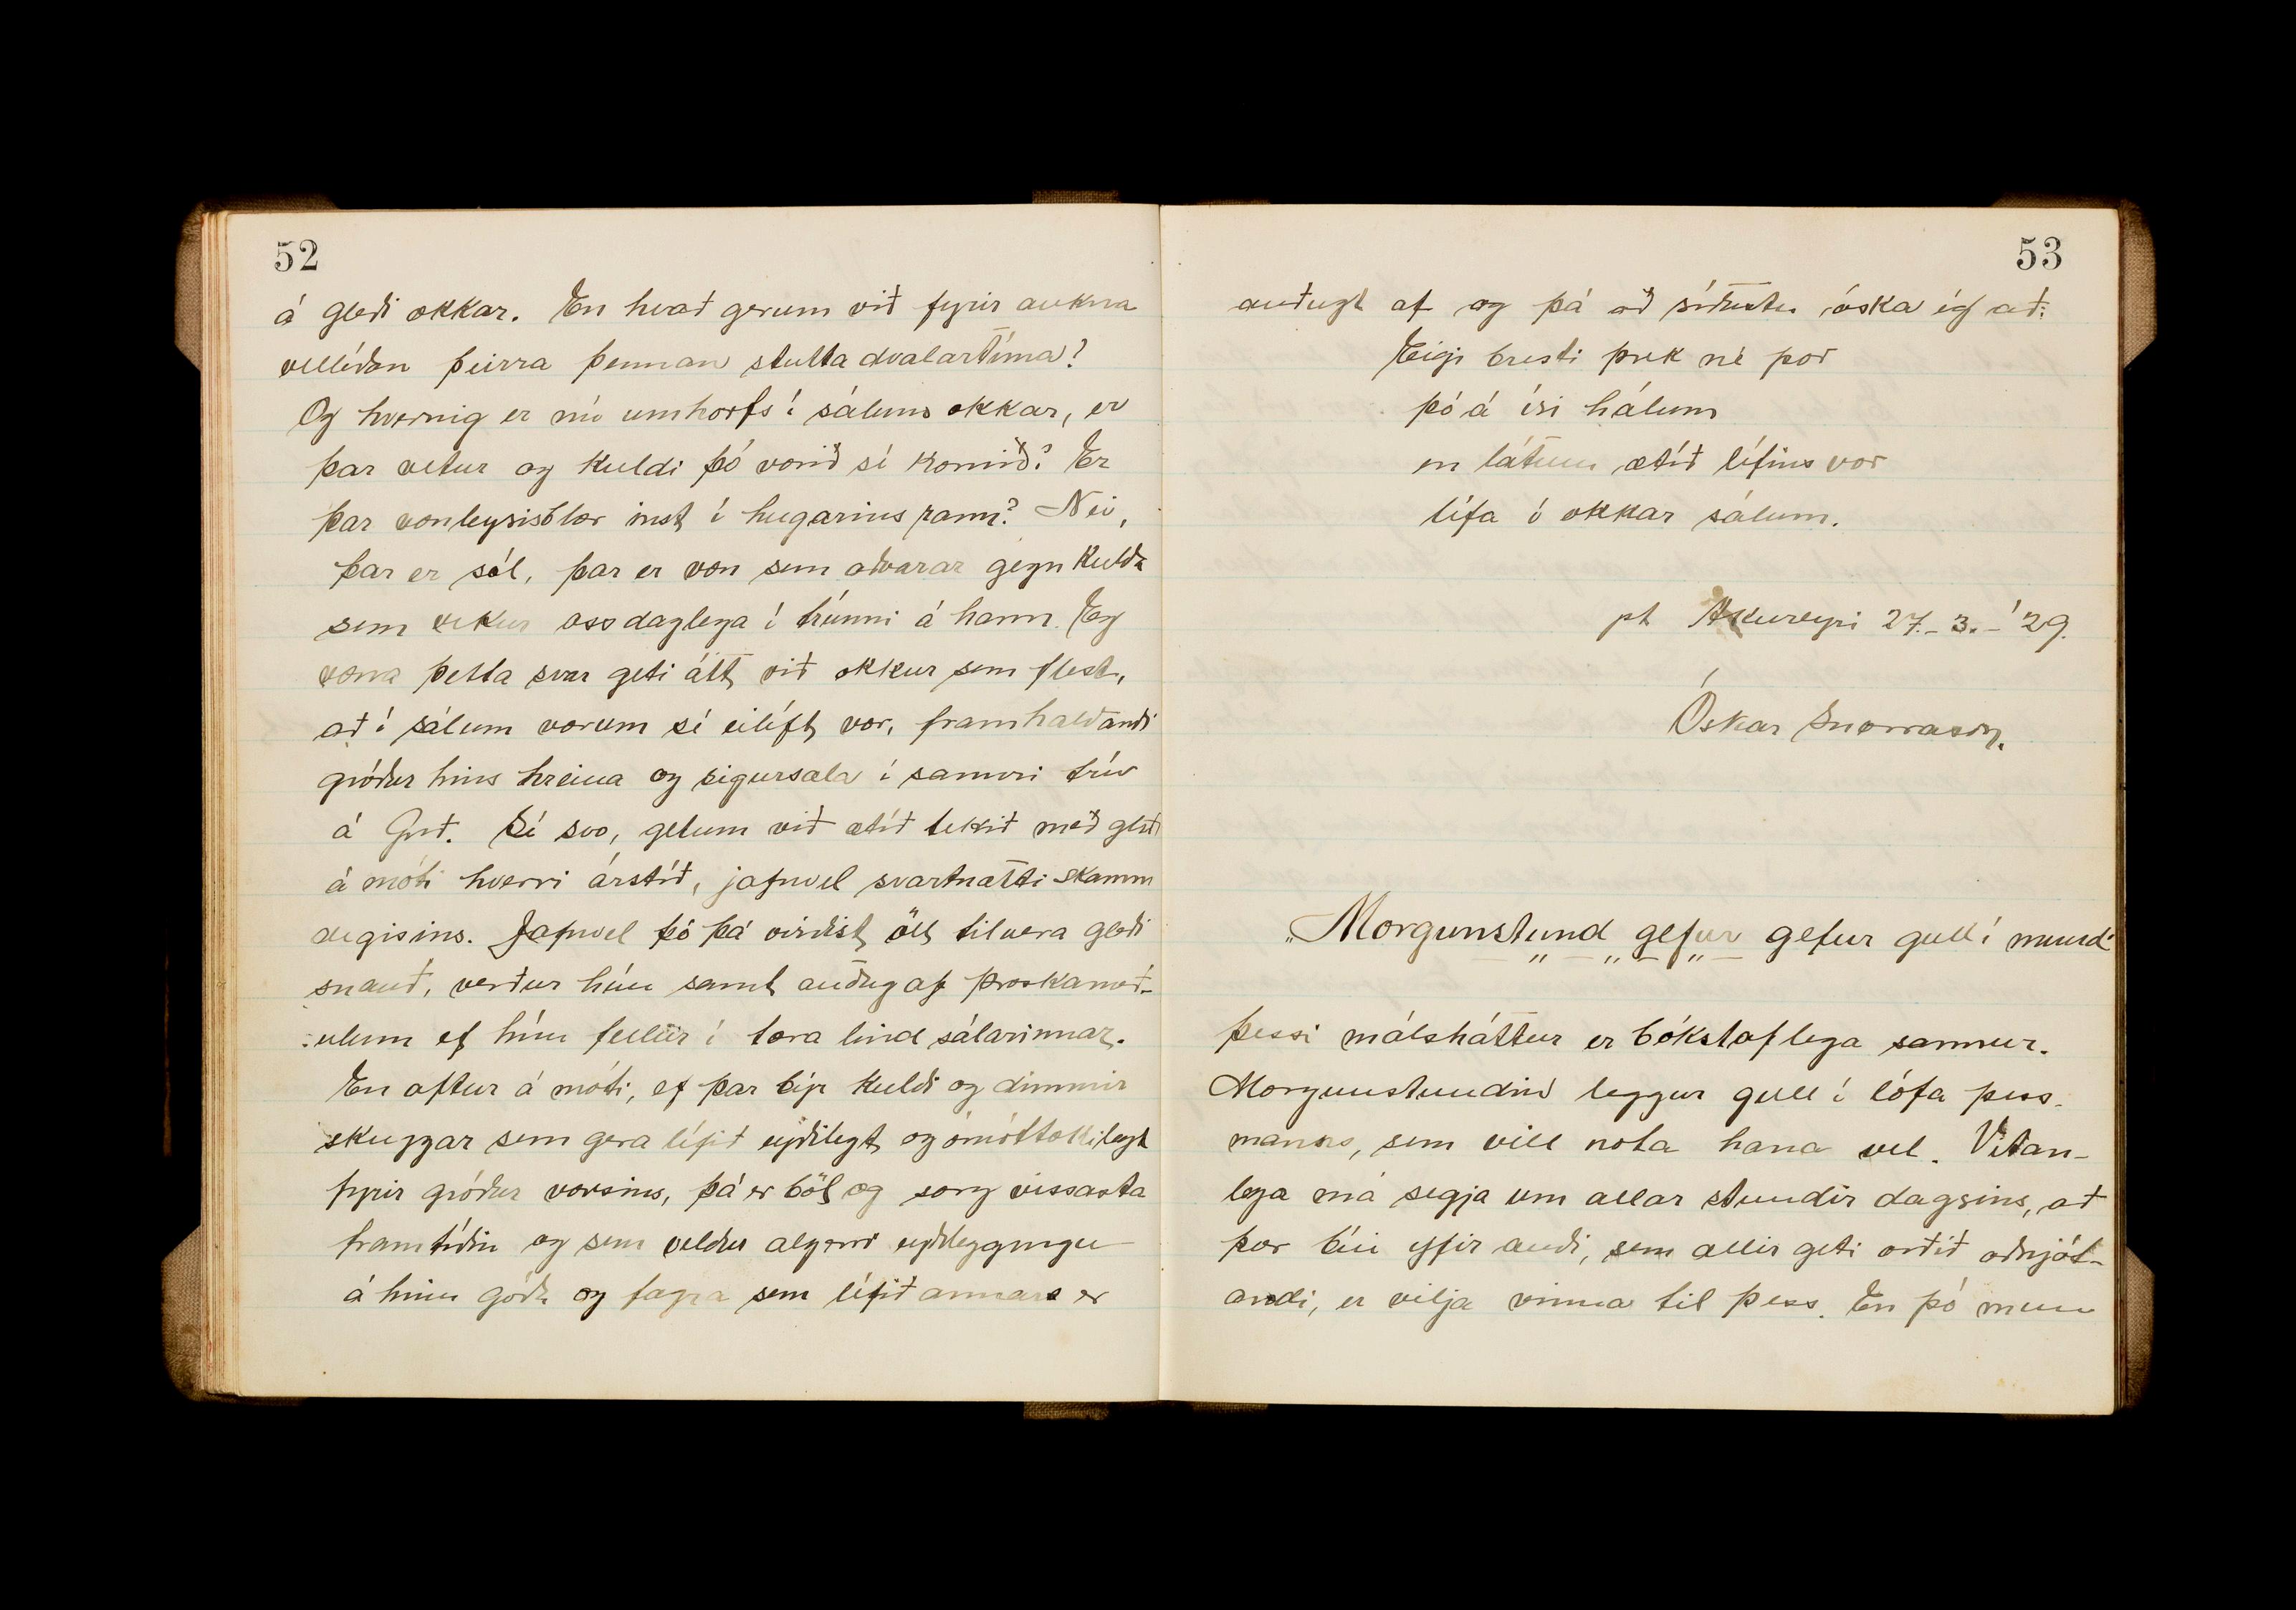 52
á gleði okkar. En hvað gerum við fyrir aukna
vellíðan þeirra þennan stutta dvalartíma?
Og hvernig er nú umhorfs í sálum okkar, er
þar vetur og kuldi þó vorið sé komið? Er
þar vonleysisblær inst í hugarins rann? Nei,
þar er sól, þar er von sem aðvarar gegn kulda
sem vekur oss daglega í trúnni á hann. Eg
vona þetta svar geti átt við okkur sem flest,
að í sálum vorum sé eilíft vor, framhaldandi
gróður hins hreina og sigursæla í sannri trú
á Guð. Sé svo, getum við ætíð tekið með gleði
á móti hverri árstíð, jafnvel svartnætti skamm
degisins. Jafnvel þó þá virðist öll tilvera gleði
snauð, verður hún samt auðug af þroskameð-
ulum ef hún fellur í tæra lind sálarinnar.
En aftur á móti, ef þar býr kuldi og dimmir
skuggar sem gera lífið eyðilegt og ómóttækilegt
fyrir gróður vorsins, þá er böl og sorg vissasta
framtíðin og sem veldur algerri eyðileggingu
á hinu góða og fagra sem lífið annars er
53
auðugt af og þá að síðustu óska ég að:
Eigi bresti þrek né þor
þó á ísi hálum
en látum ætíð lífsins vor
lifa í okkar sálum.
pt Akureyri 27.-3.-'29.
Óskar Snorrason.
„Morgunstund gefur gefur gull í mund"
Þessi málsháttur er bókstaflega sannur.
Morgunstundin leggur gull í lófa þess
manns, sem vill nota hana vel. Vitan-
lega má segja um allar stundir dagsins, að
þær búi yfir auði, sem allir geti orðið aðnjót-
andi, er vilja vinna til þess. En þó mun